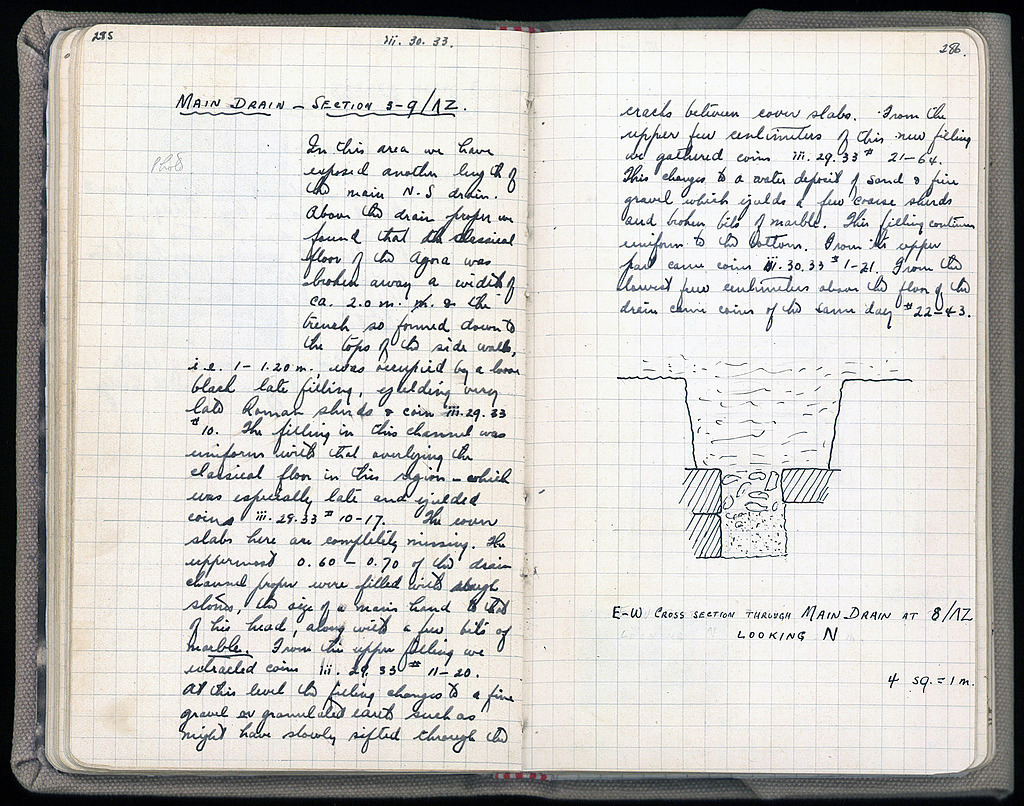 285
iii. 30. 33.
MAIN DRAIN – SECTION 3–9/ΛZ.
Photo
In this area we have
exposed another length of
the main N.-S drain.
Above the drain proper we
found that the classical
floor of the Agora was
broken away a width of
ca. 2.0 m. & the
trench so formed down to
the tops of the side walls,
i.e. 1 – 1.20 m., was occupied by a loose
black late filling, yielding very
late Roman sherds & coin iii.29.33
#10. The filling in this channel was
uniform with that overlying the
classical floor in this region – which
was especially late and yielded
coins iii.29.33 # 10–17. The cover
slabs here are completely missing. The
uppermost 0.60 – 0.70 of the drain
channel proper were filled with rough
stones, the size of a mans hand to that
of his head, along with a few bits of
marble. From this upper filling we
extracted coins iii. 29. 33 # 11–20.
At this level the filling changes to a fine
gravel or granulated earth such as
might have slowly sifted through the
286.
cracks between cover slabs. From the
upper few centimeters of this new filling
we gathered coins iii.29.33 # 21–64.
This changes to a water deposit of sand & fine
gravel which yields a few coarse sherds
and broken bits of marble. This filling continues
uniform to the bottom. From its upper
part came coins iii.30.33 # 1–21. From the
lowest few centimeters above the floor of the
drain came coins of the same day # 22–43.
E–W CROSS SECTION THROUGH MAIN DRAIN AT 8/ΛZ
LOOKING N
4 sq. = 1 m.